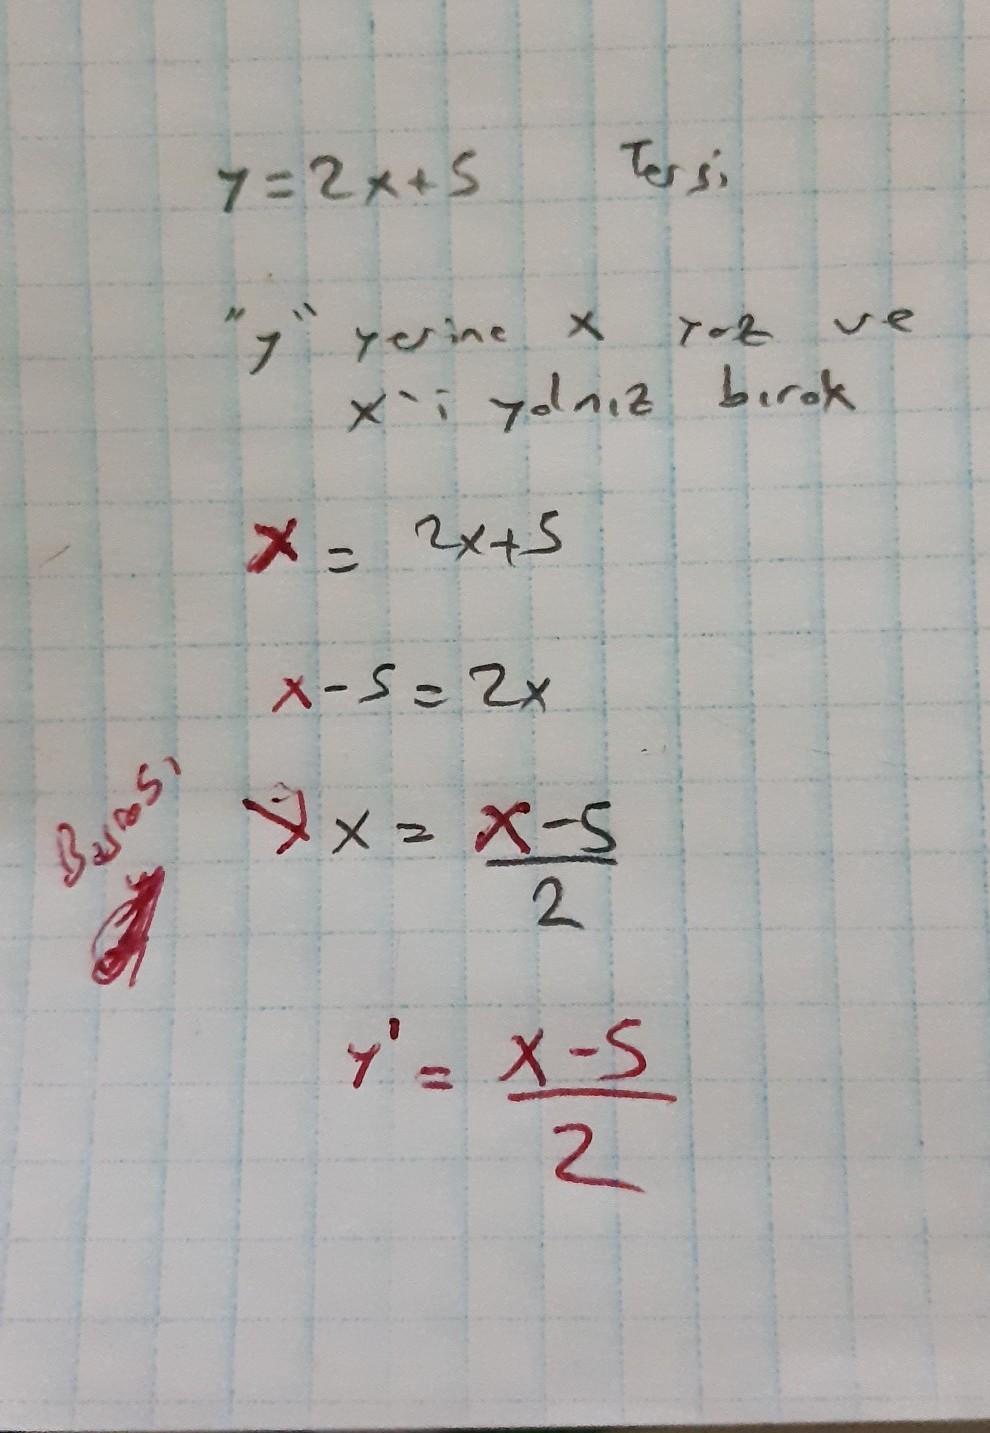 y = 2x+5 Tersi
"y" yerine x yaz ve
x'i yalnız bırak
x = 2x+5
x-5 = 2x
Burası
y x = x-5
2
y' = x-5
2